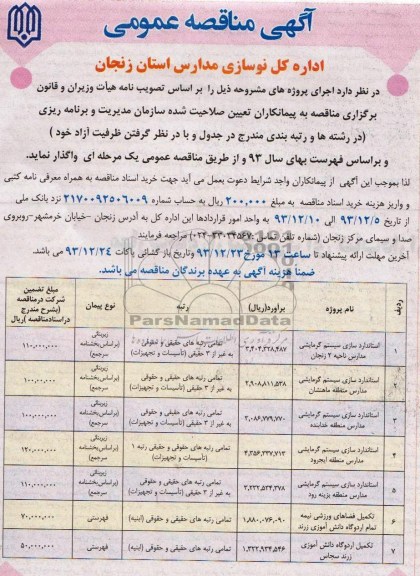 آگهی مناقصه عمومی
اداره کل نوسازی مدارس استان زنجان
در نظر دارد اجرای پروژه های مشروحه ذیل را بر اساس تصویب نامه هیأت وزیران و قانون
برگزاری مناقصه به پیمانکاران تعیین صلاحیت شده سازمان مدیریت و برنامه ریزی
(در رشته ها و رتبه بندی مندرج در جدول و با در نظر گرفتن ظرفیت آزاد خود )
و براساس فهرست بهای سال ۹۳ و از طریق مناقصه عمومی یک مرحله ای واگذار نماید.
لذا بموجب این آگهی از پیمانکاران واجد شرایط دعوت بعمل می آید جهت خرید اسناد مناقصه به همراه معرفی نامه کتبی
و واریز هزینه خرید اسناد مناقصه به مبلغ ۲۰۰,۰۰۰ ریال به حساب شماره ۲۱۷۰۰۹۲۵۰۶۰۰۹ نزد بانک ملی
از تاریخ ۹۳/۱۲/۵ الی ۹۳/۱۲/۱۰ به واحد امور قراردادها این اداره کل به آدرس زنجان -خیابان خرمشهر-روبروی
صدا و سیمای مرکز زنجان (شماره تلفن تماس: ۳۳۰۳۴۵۶۷-۰۲۴) مراجعه فرمایند
آخرین مهلت ارائه پیشنهاد تا ساعت ۱۳ مورخ ۹۳/۱۲/۲۳ وتاریخ باز گشائی پاکات ۹۳/۱۲/۲۴ می باشد.
ضمناً هزینه آگهی به عهده برندگان مناقصه می باشد.
ParsNamadData
ردیف نام پروژه برآورد(ریال) رتبه نوع پیمان مبلغ تضمین شرکت درمناقصه (بشرح مندرج دراسنادمناقصه )ریال
۱ استاندارد سازی سیستم گرمایشی مدارس ناحیه ۲ زنجان ۳,۴۰۴,۳۲۸,۴۸۷ تمامی رتبه های حقیقی و حقوقی به غیر از ۳ حقیقی (تأسیسات و تجهیزات) زیربنائی (براساس‌بخشنامه سرجمع) ۱۱۰,۰۰۰,۰۰۰
۲ استاندارد سازی سیستم گرمایشی مدارس منطقه ماهنشان ۲,۹۰۸,۸۱۱,۵۳۸ تمامی رتبه های حقیقی و حقوقی به غیر از ۳ حقیقی (تأسیسات و تجهیزات) زیربنائی (براساس‌بخشنامه سرجمع) ۱۰۰,۰۰۰,۰۰۰
۳ استاندارد سازی سیستم گرمایشی مدارس منطقه خدابنده ۳,۰۸۶,۷۷۹,۷۷۰ تمامی رتبه های حقیقی و حقوقی به غیر از ۳ حقیقی (تأسیسات و تجهیزات) زیربنائی (براساس‌بخشنامه سرجمع) ۱۰۰,۰۰۰,۰۰۰
۴ استاندارد سازی سیستم گرمایشی مدارس منطقه ایجرود ۴,۳۵۶,۳۳۷,۷۱۳ تمامی رتبه های حقیقی و حقوقی رتبه ۱ (تأسیسات و تجهیزات) زیربنائی (براساس‌بخشنامه سرجمع) ۱۲۰,۰۰۰,۰۰۰
۵ استاندارد سازی سیستم گرمایشی مدارس منطقه بزینه رود ۳,۲۳۲,۵۳۴,۳۷۸ تمامی رتبه های حقیقی و حقوقی به غیر از ۳ حقیقی (تأسیسات و تجهیزات) زیربنائی (براساس‌بخشنامه سرجمع) ۱۱۰,۰۰۰,۰۰۰
۶ تکمیل فضاهای ورزشی نیمه تمام اردوگاه دانش آموزی زرند ۱,۸۸۰,۰۷۶,۰۹۰ تمامی رتبه های حقیقی و حقوقی (ابنیه) فهرستی ۷۰,۰۰۰,۰۰۰
۷ تکمیل اردوگاه دانش آموزی زرند سجاس ۱,۳۲۲,۹۳۴,۵۴۶ تمامی رتبه های حقیقی و حقوقی (ابنیه) فهرستی ۵۰,۰۰۰,۰۰۰